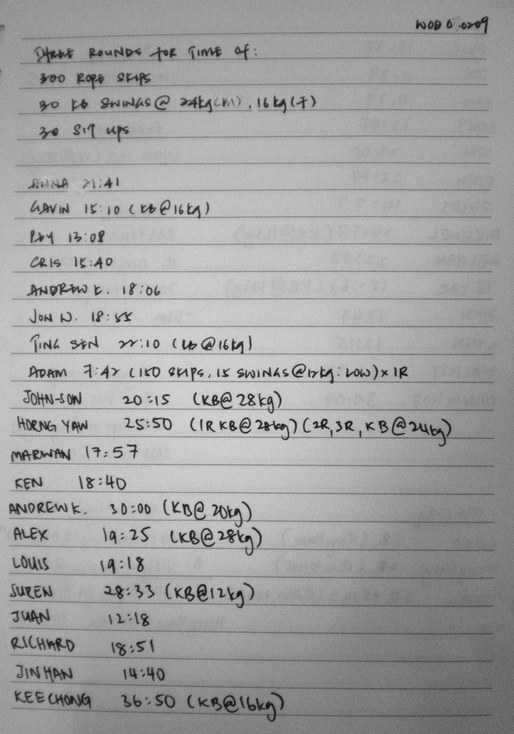 WOD 020209
THREE ROUNDS FOR TIME OF:
300 ROPE SKIPS
30 KB SWINGS @ 24kg(M), 16kg(F)
30 SIT UPS
ANNA 21:41
GAVIN 15:10 (KB@16kg)
13:08
CRIS 15:40
ANDREW E. 18:06
JON W. 18:55
TING SEN 22:10 (KB@16kg)
ADAM 7:42 (150 SKIPS, 15 SWINGS@12kg: LOW) x 1R
JOHN-SON 20:15 (KB@28kg)
HORNG YAW 25:50 (1R KB@28kg) (2R, 3R, KB@24kg)
MARWAN 17:57
KEN 18:40
ANDREW K. 30:00 (KB@20kg)
ALEX 19:25 (KB@28kg)
LOUIS 19:18
SUREN 28:33 (KB@12kg)
JUAN 12:18
RICHARD 18:51
JINHAN 14:40
KEECHONG 36:50 (KB@16kg)